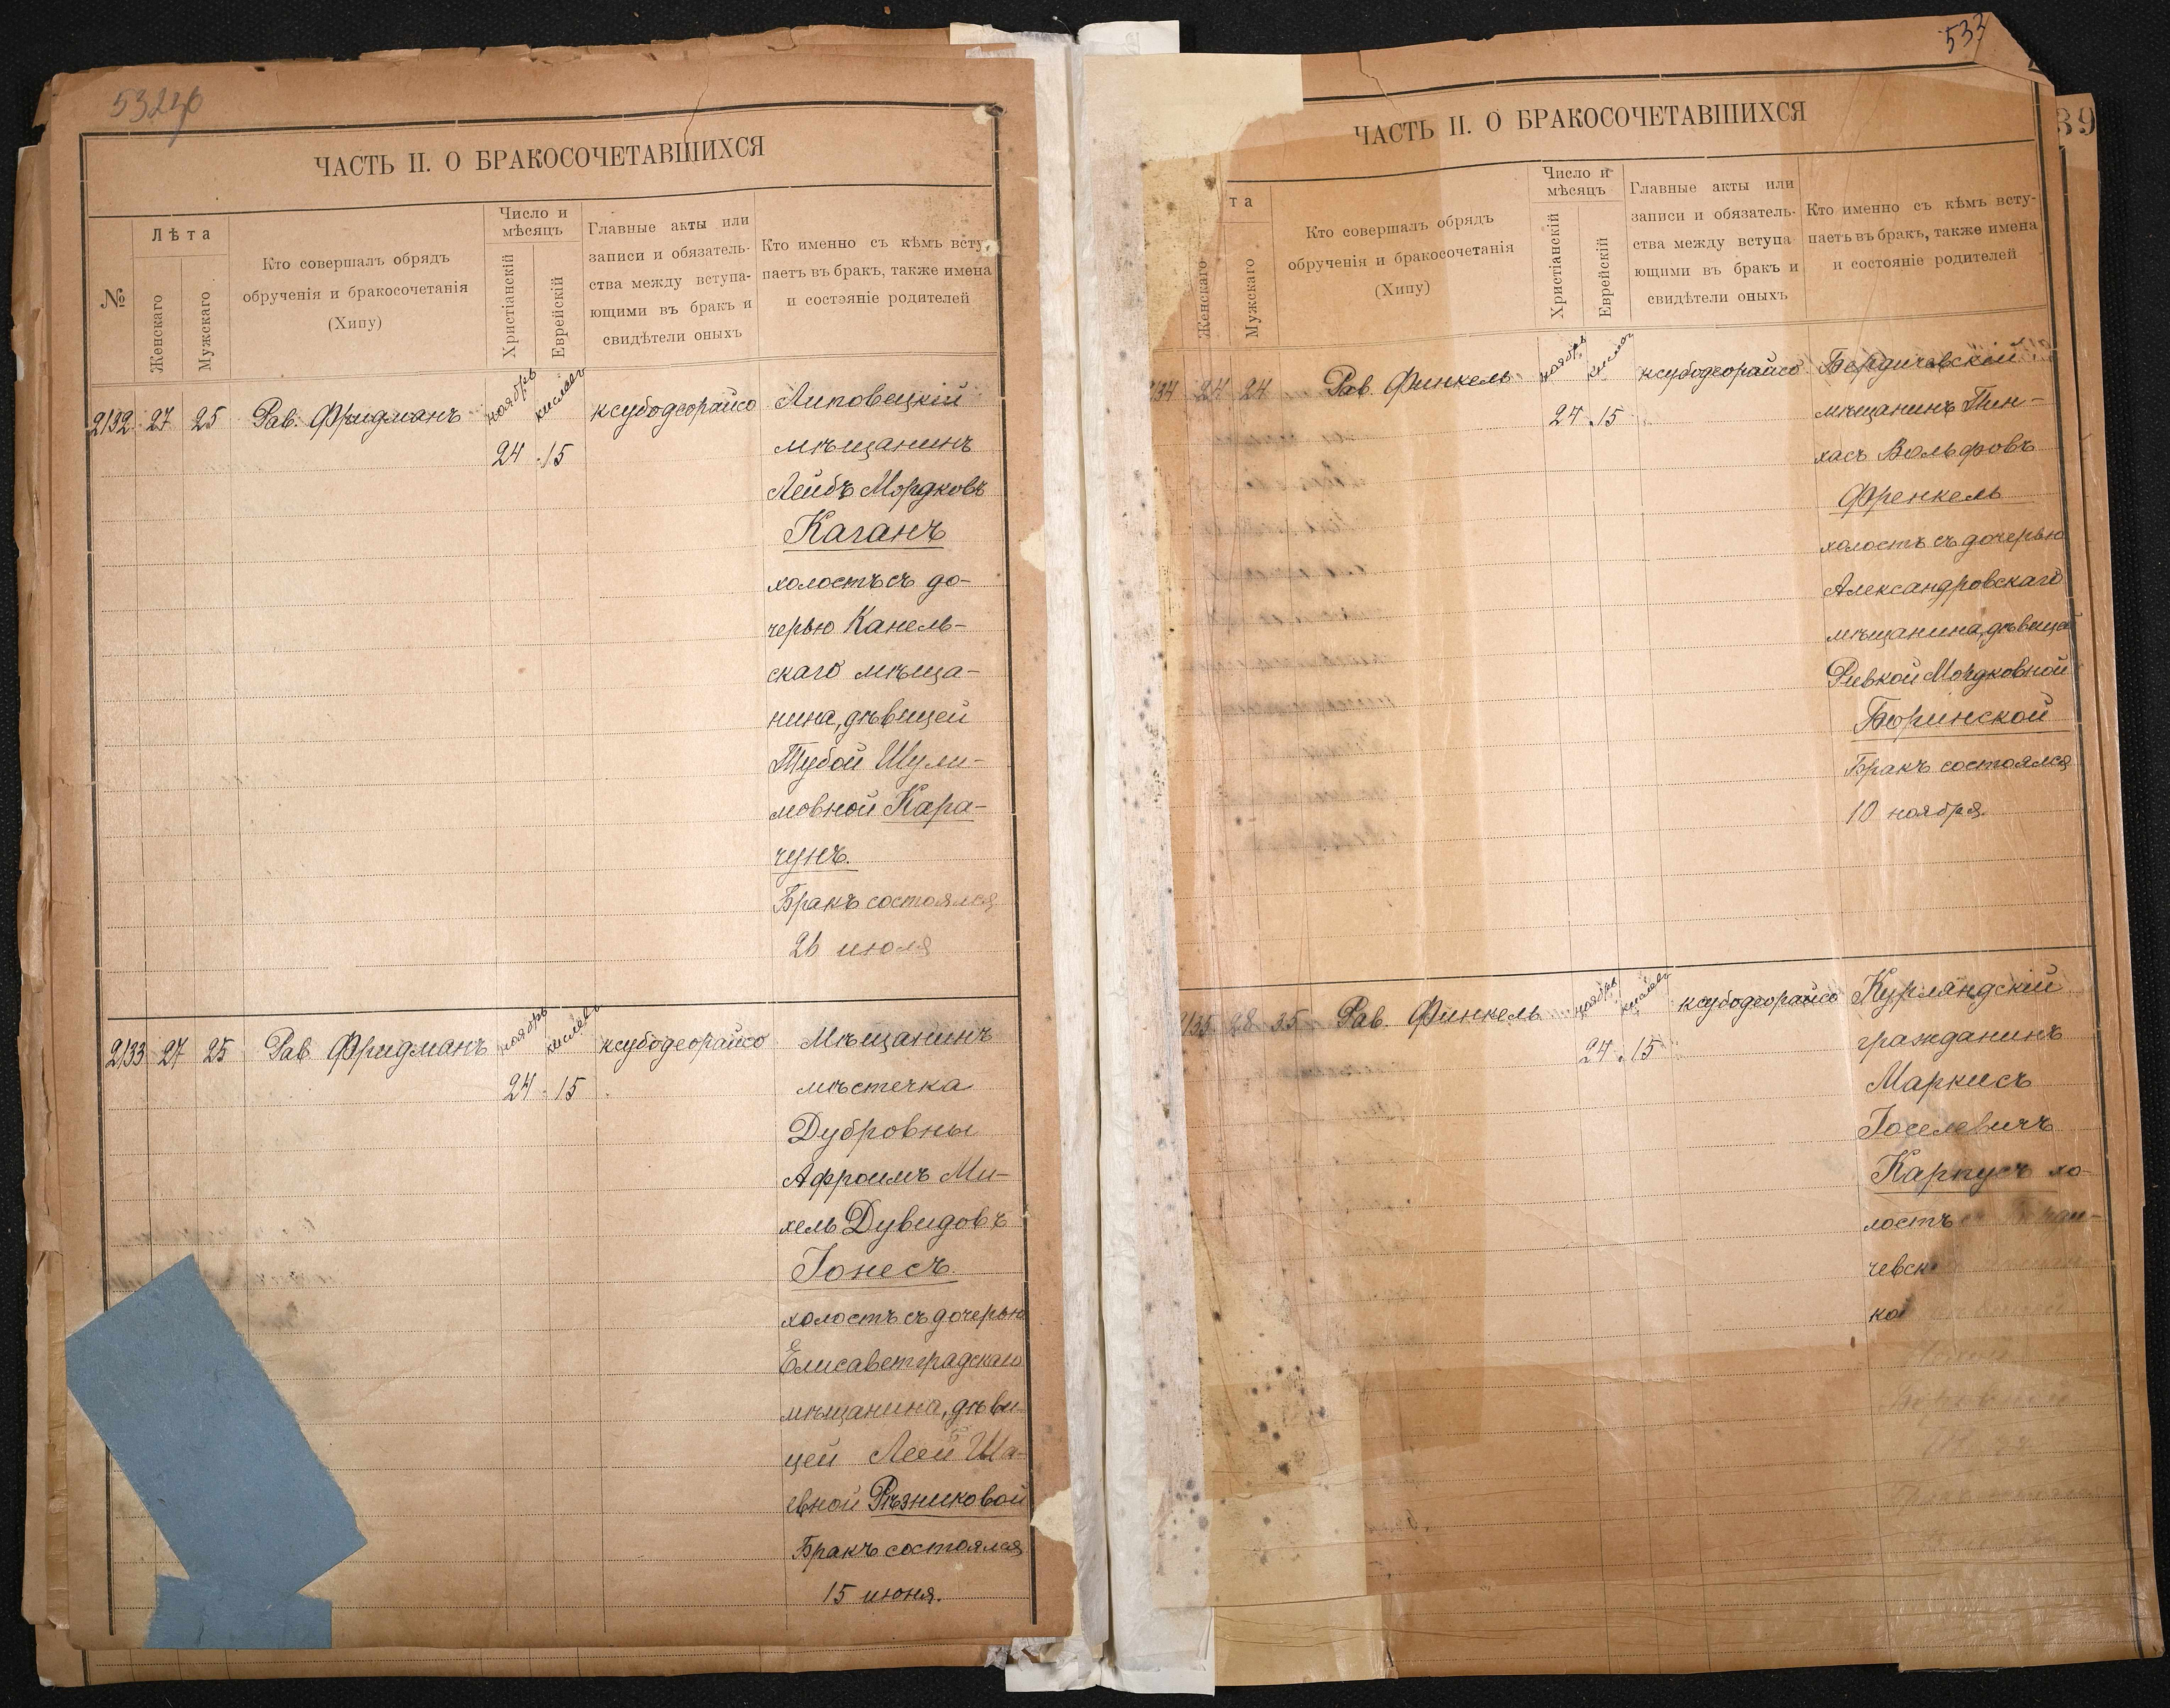 ЧАСТЬ II. О БРАКОСОЧЕТАВШИХСЯ
№
Лѣта
Женскаго
Мужскаго
Кто совершалъ обрядъ
обрученія и бракосочетанія
(Хипу)
Число и
мѣсяцъ
Христіанскій
Еврейскій
Главные акты или
записи и обязатель-
ства между вступа-
ющими въ бракъ и
свидѣтели оныхъ
Кто именно съ кѣмъ всту-
паетъ въ бракъ, также имена
и состояніе родителей
2132 27 25 Рав. Фридманъ ноябрь кислевъ ксубодеорайсо Липовецкій
24 15 мѣщанинъ
Лейбъ Мордковъ
Каганъ
холостъ съ до-
черью Канель-
скаго мѣща-
нина, дѣвицей
Тубой Шули-
мовной Кара-
чунъ.
Бракъ состоялся
26 июля
2133 27 25 Рав. Фридманъ ноябрь кислевъ ксубодеорайсо Мѣщанинъ
24 15 мѣстечка
Дубровны
Афроимъ Ми-
хель Дувидовъ
Іонесъ
холостъ съ дочерью
Елисаветградскаго
мѣщанина, дѣви-
цей Леей Ша-
евной Рѣзниковой
Бракъ состоялся
15 июня.
533
39
ЧАСТЬ II. О БРАКОСОЧЕТАВШИХСЯ
та
Женскаго
Мужскаго
Кто совершалъ обрядъ
обрученія и бракосочетанія
(Хипу)
Число и
мѣсяцъ
Христіанскій
Еврейскій
Главные акты или
записи и обязатель-
ства между вступа-
ющими въ бракъ и
свидѣтели оныхъ
Кто именно съ кѣмъ всту-
паетъ въ бракъ, также имена
и состояніе родителей
134 24 24 Рав. Финкель ноябрь кислевъ ксубодеорайсо Бердичевскій
24 15 мѣщанинъ Пин-
хасъ Вольфовъ
Френкель
холостъ съ дочерью
Александровскаго
мѣщанина, дѣвицей
Ривкой Мордковной
Юринской
Бракъ состоялся
10 ноября.
2135 28 35 Рав. Финкель ноябрь кислевъ ксубодеорайсо Курляндскій
24 15 гражданинъ
Маркусъ
Іоселевичъ
Карпусъ хо-
лостъ
чевск